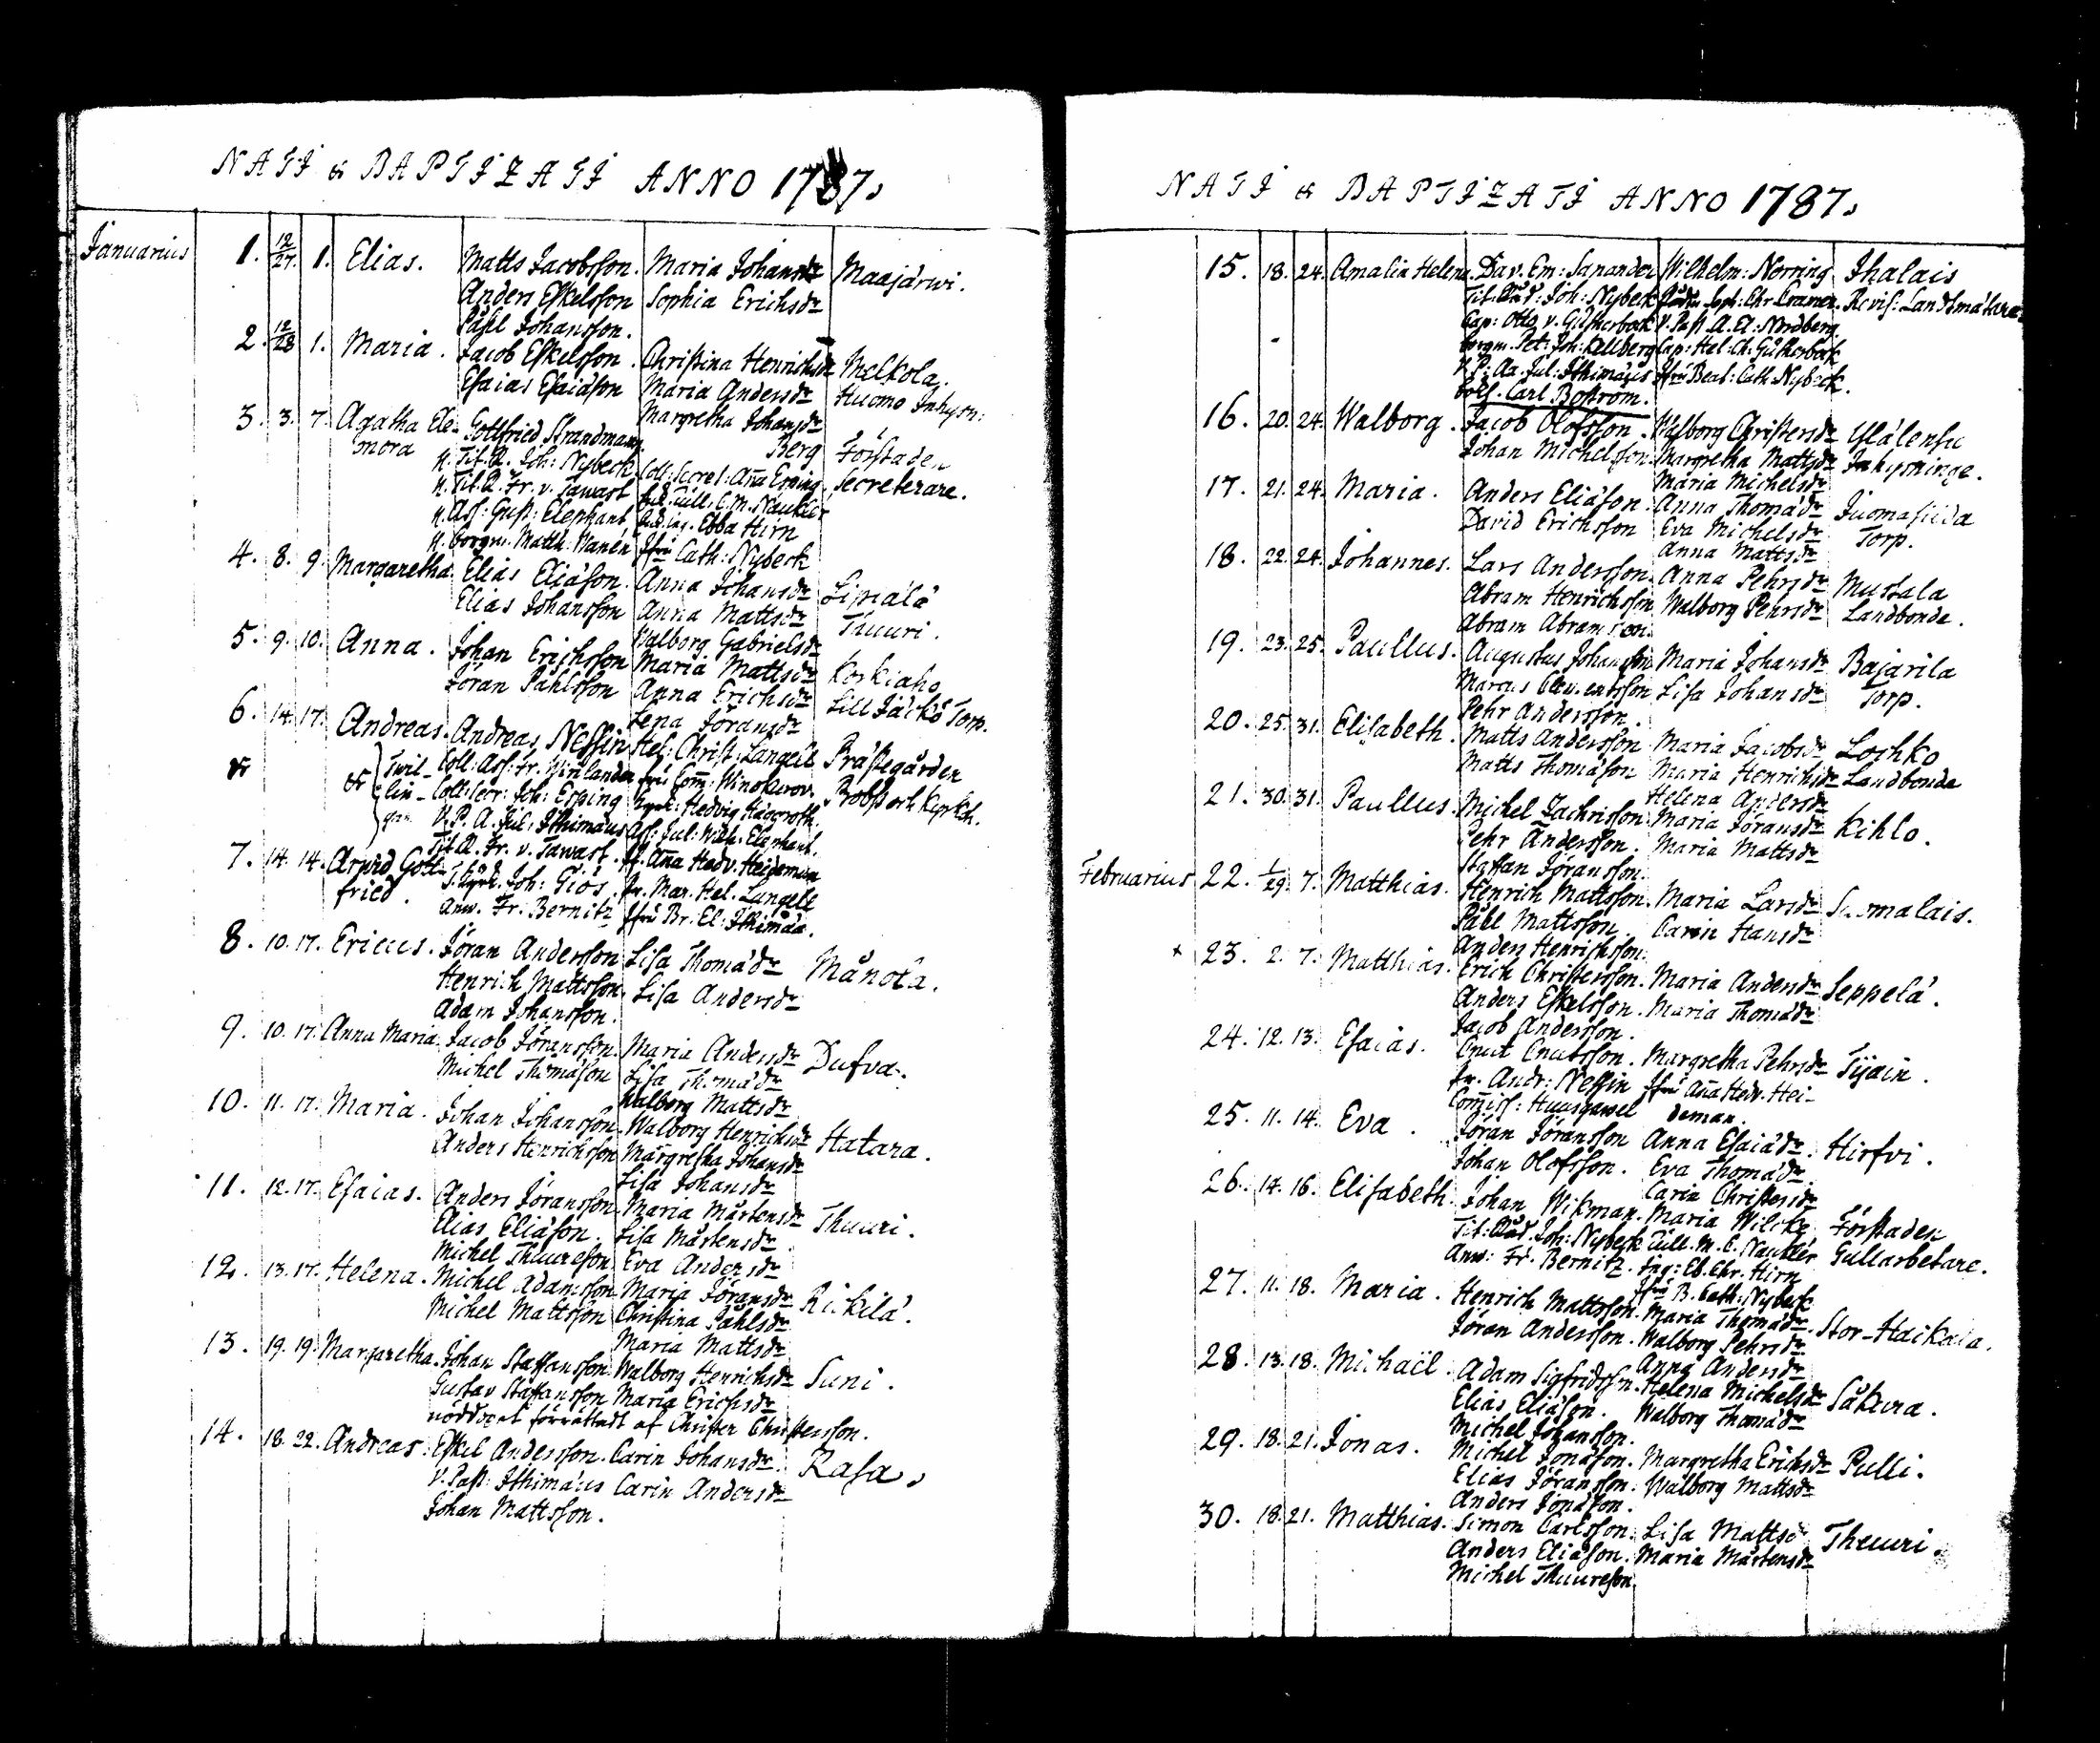 NATI & BAPTIZATI ANNO 1787.
Januarius 1. 12/27. 1. Elias. Matts Jacobsson. Maria Johansdr Maajärwi.
Anders Eskelsson Sophia Erichsdr
Påhl Johansson.
2. 12/28 1. Maria. Jacob Eskelsson. Christina Henrichsdr Melkola.
Esaias Esaiasson Maria Andersdr Huomo Inhysn:
3. 3. 7. Agatha Ele- Gottfried Strandmann Margretha Johansdr
mora Berg Förstaden
H. Tit. R. Joh: Nybeck Coll: Secret: Aña Esping Secreterare.
H. Tit. R. Fr. v. Tawast Tull. C. M. Naukler
H. Ass: Gust: Elephant Ebba Hirn
H. Borgm. Matth: Wanén Jfru Cath: Nybeck
4. 8. 9. Margaretha. Elias Eliasson. Anna Johansdr Lipiälä
Elias Johansson Anna Mattsdr Thuuri.
Walborg Gabrielsdr
5. 9. 10. Anna. Johan Erichsson Maria Mattsdr Korkiaho
Jöran Påhlsson Anna Erichsdr Lill Jäckö Torp.
Lena Jöransdr
6. 14. 17. Andreas. Andreas Nessin Hel: Christ: Langell Prästegården
& & Twil- Coll: Ass: Fr. Winokurov. Probst och Kyrkoh.
lin- Coll: Secr: Joh: Esping Hedvig Häggroth.
gar V. P. A. Jul: Ithimäus Ass: Jul: Wilh: Elephant.
7. 14. 14. Arvid Gott- Tit. R. Fr. v. Tawast. Aña Hedv. Heideman
fried. Joh: Giös. Fr. Mar. Hel. Langell
Anw. Fr. Bernitz Jfru Br: El: Ithimäa.
8. 10. 17. Ericus. Jöran Andersson Lisa Thomädr Månola.
Henrich Mattsson. Lisa Andersdr
Adam Johansson.
9. 10. 17. Anna Maria. Jacob Jöransson. Maria Andersdr Dufva.
Michel Thomäson Lisa Thomädr
Walborg Mattsdr
10. 11. 17. Maria. Johan Johansson. Walborg Henrichsdr Hatara.
Anders Henrichsson Margretha Johansdr
Lisa Johansdr
11. 12. 17. Esaias. Anders Jöransson Maria Mårtensdr Thuuri.
Elias Eliäson. Lisa Mårtensdr
Michel Thuureson. Eva Andersdr
12. 13. 17. Helena. Michel Adamsson Maria Jöransdr Rickilä.
Michel Mattsson Christina Påhlsdr
Maria Mattsdr
13. 19. 19. Margaretha. Johan Staffansson. Walborg Henrichsdr Suni.
Gustav Staffansson Maria Erichsdr
nöddopet förrättadt af Christer Christersson.
14. 18. 22. Andreas. Eskel Andersson. Carin Johansdr. Rasa.
V. Past: Ithimäus Carin Andersdr
Johan Mattsson.
NATI & BAPTIZATI ANNO 1787.
15. 18. 24. Amalia Helena. Dav. Em: Sanander Wilhelm: Norring Ihalais
Tit. Råd: Joh: Nybeck Soph: Chr Cramer. Revis: Landtmätare.
Cap: Otto v. Gülherbock V. Past. A. El: Nordberg.
Borgm. Pet: Joh: Kellberg Cap: Hel: Ch: Gülherbock
V. P. Aa. Jul: Ithimäus Jfru Beat: Cath: Nybeck.
Carl Boström.
16. 20. 24. Walborg. Jacob Olofsson. Walborg Christersdr Ylälensu
Johan Michelsson. Margretha Mattsdr Inhysninge.
Maria Michelsdr
17. 21. 24. Maria. Anders Eliäson. Anna Thomädr Juomasuda
David Erichsson Eva Michelsdr Torp.
Anna Mattsdr
18. 22. 24. Johannes. Lars Andersson. Anna Pehrsdr Mustala
Abram Henrichsson Walborg Pehrsdr Landbonde.
Abram Abramsson.
19. 23. 25. Paullus. Augustus Johansson Maria Johansdr Bajarila
Marcus Clementsson Lisa Johansdr Torp.
Pehr Andersson.
20. 25. 31. Elisabeth. Matts Andersson Maria Jacobsdr Lochko
Matts Thomäson Maria Henrichsdr Landbonde
Helena Andersdr
21. 30. 31. Paullus. Michel Zachrisson. Maria Jöransdr Kihlo.
Pehr Andersson. Maria Mattsdr
Staffan Jöransson.
Februarius 22. 1/29. 7. Matthias. Henrich Mattsson. Maria Larsdr Suomalais.
Påhl Mattsson. Carin Hansdr
Anders Henrichsson.
+ 23. 2. 7. Matthias. Erich Christersson. Maria Andersdr Seppelä.
Anders Eskelsson. Maria Thomädr
Jacob Andersson.
24. 12. 13. Esaias. Cnut Cnutsson. Margretha Pehrsdr Tijäin.
Fr. Andr: Nessin Jfru Aña Hedv. Hei-
Com̃iss: Huusgawel deman.
25. 11. 14. Eva. Jöran Jöransson Anna Esaiädr. Hirfvi.
Johan Olofsson. Eva Thomädr
Carin Christersdr
26. 14. 16. Elisabeth. Johan Wikman. Maria Wilcke Förstaden
Tit: Råd. Joh: Nybeck Tull. M. C. Naukler Gullarbetare.
Anw: Fr. Bernitz. Ing: Eb. Chr. Hirn
Jfru B. Cath: Nybeck
27. 11. 18. Maria. Henrich Mattsson. Maria Thomädr. Stor-Haikala.
Jöran Andersson. Walborg Pehrsdr
Anna Andersdr
28. 13. 18. Michaël. Adam Sigfridsson. Helena Michelsdr Såkura.
Elias Eliäson. Walborg Thomädr
Michel Johansson.
29. 18. 21. Jonas. Michel Jonäson. Margretha Erichsdr Pulli.
Elias Jöransson. Walborg Mattsdr
Anders Jonäson.
30. 18. 21. Matthias. Simon Carlsson. Lisa Mattsdr Thuuri.
Anders Eliäson. Maria Mårtensdr
Michel Thuureson.